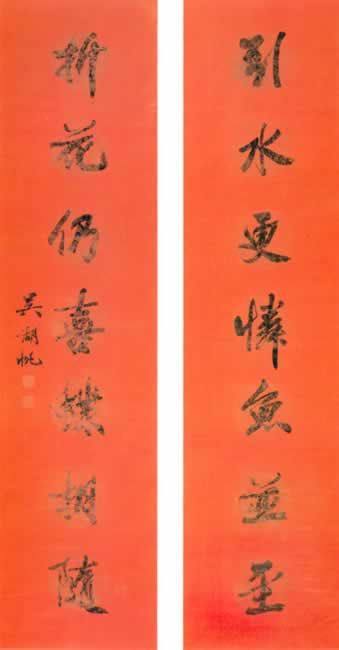 引水更憐魚並至
折花仍喜蝶相隨
吳湖帆